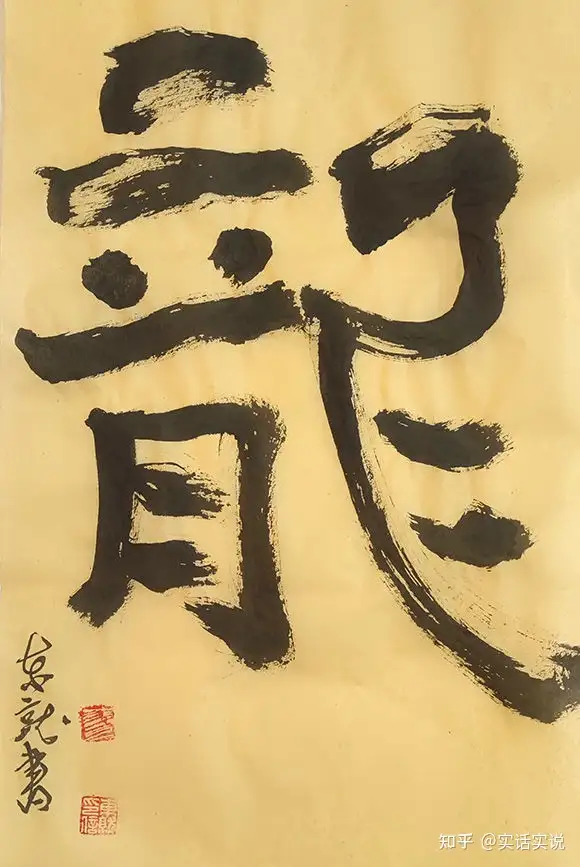 龍
东就書
知乎 @实话实说